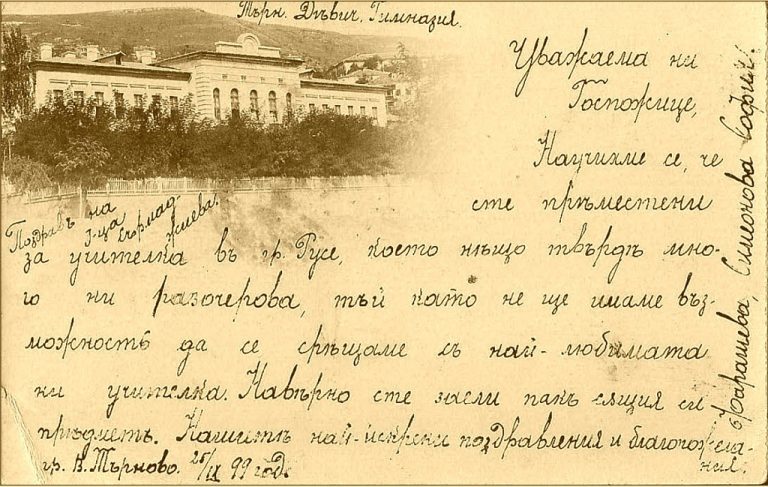 Търн. Дѣвич. Гимназия.
Уважаема ни
Госпожице,
Научихме се, че
сте прѣместени
за учителка въ гр. Русе, което нѣщо твърдѣ мно-
го ни разочерова, тъй като не ще имаме въз-
можность да се срѣщаме съ най-любимата
ни учителка. Навѣрно сте заели пакъ същия си
прѣдметъ. Нашитѣ най-искрени поздравления и благопожела-
ния.
гр. В. Търново. 25/IX 99 год.
Поздравъ на
г-ца
Сърмад-
жиева.
Симеонова София.